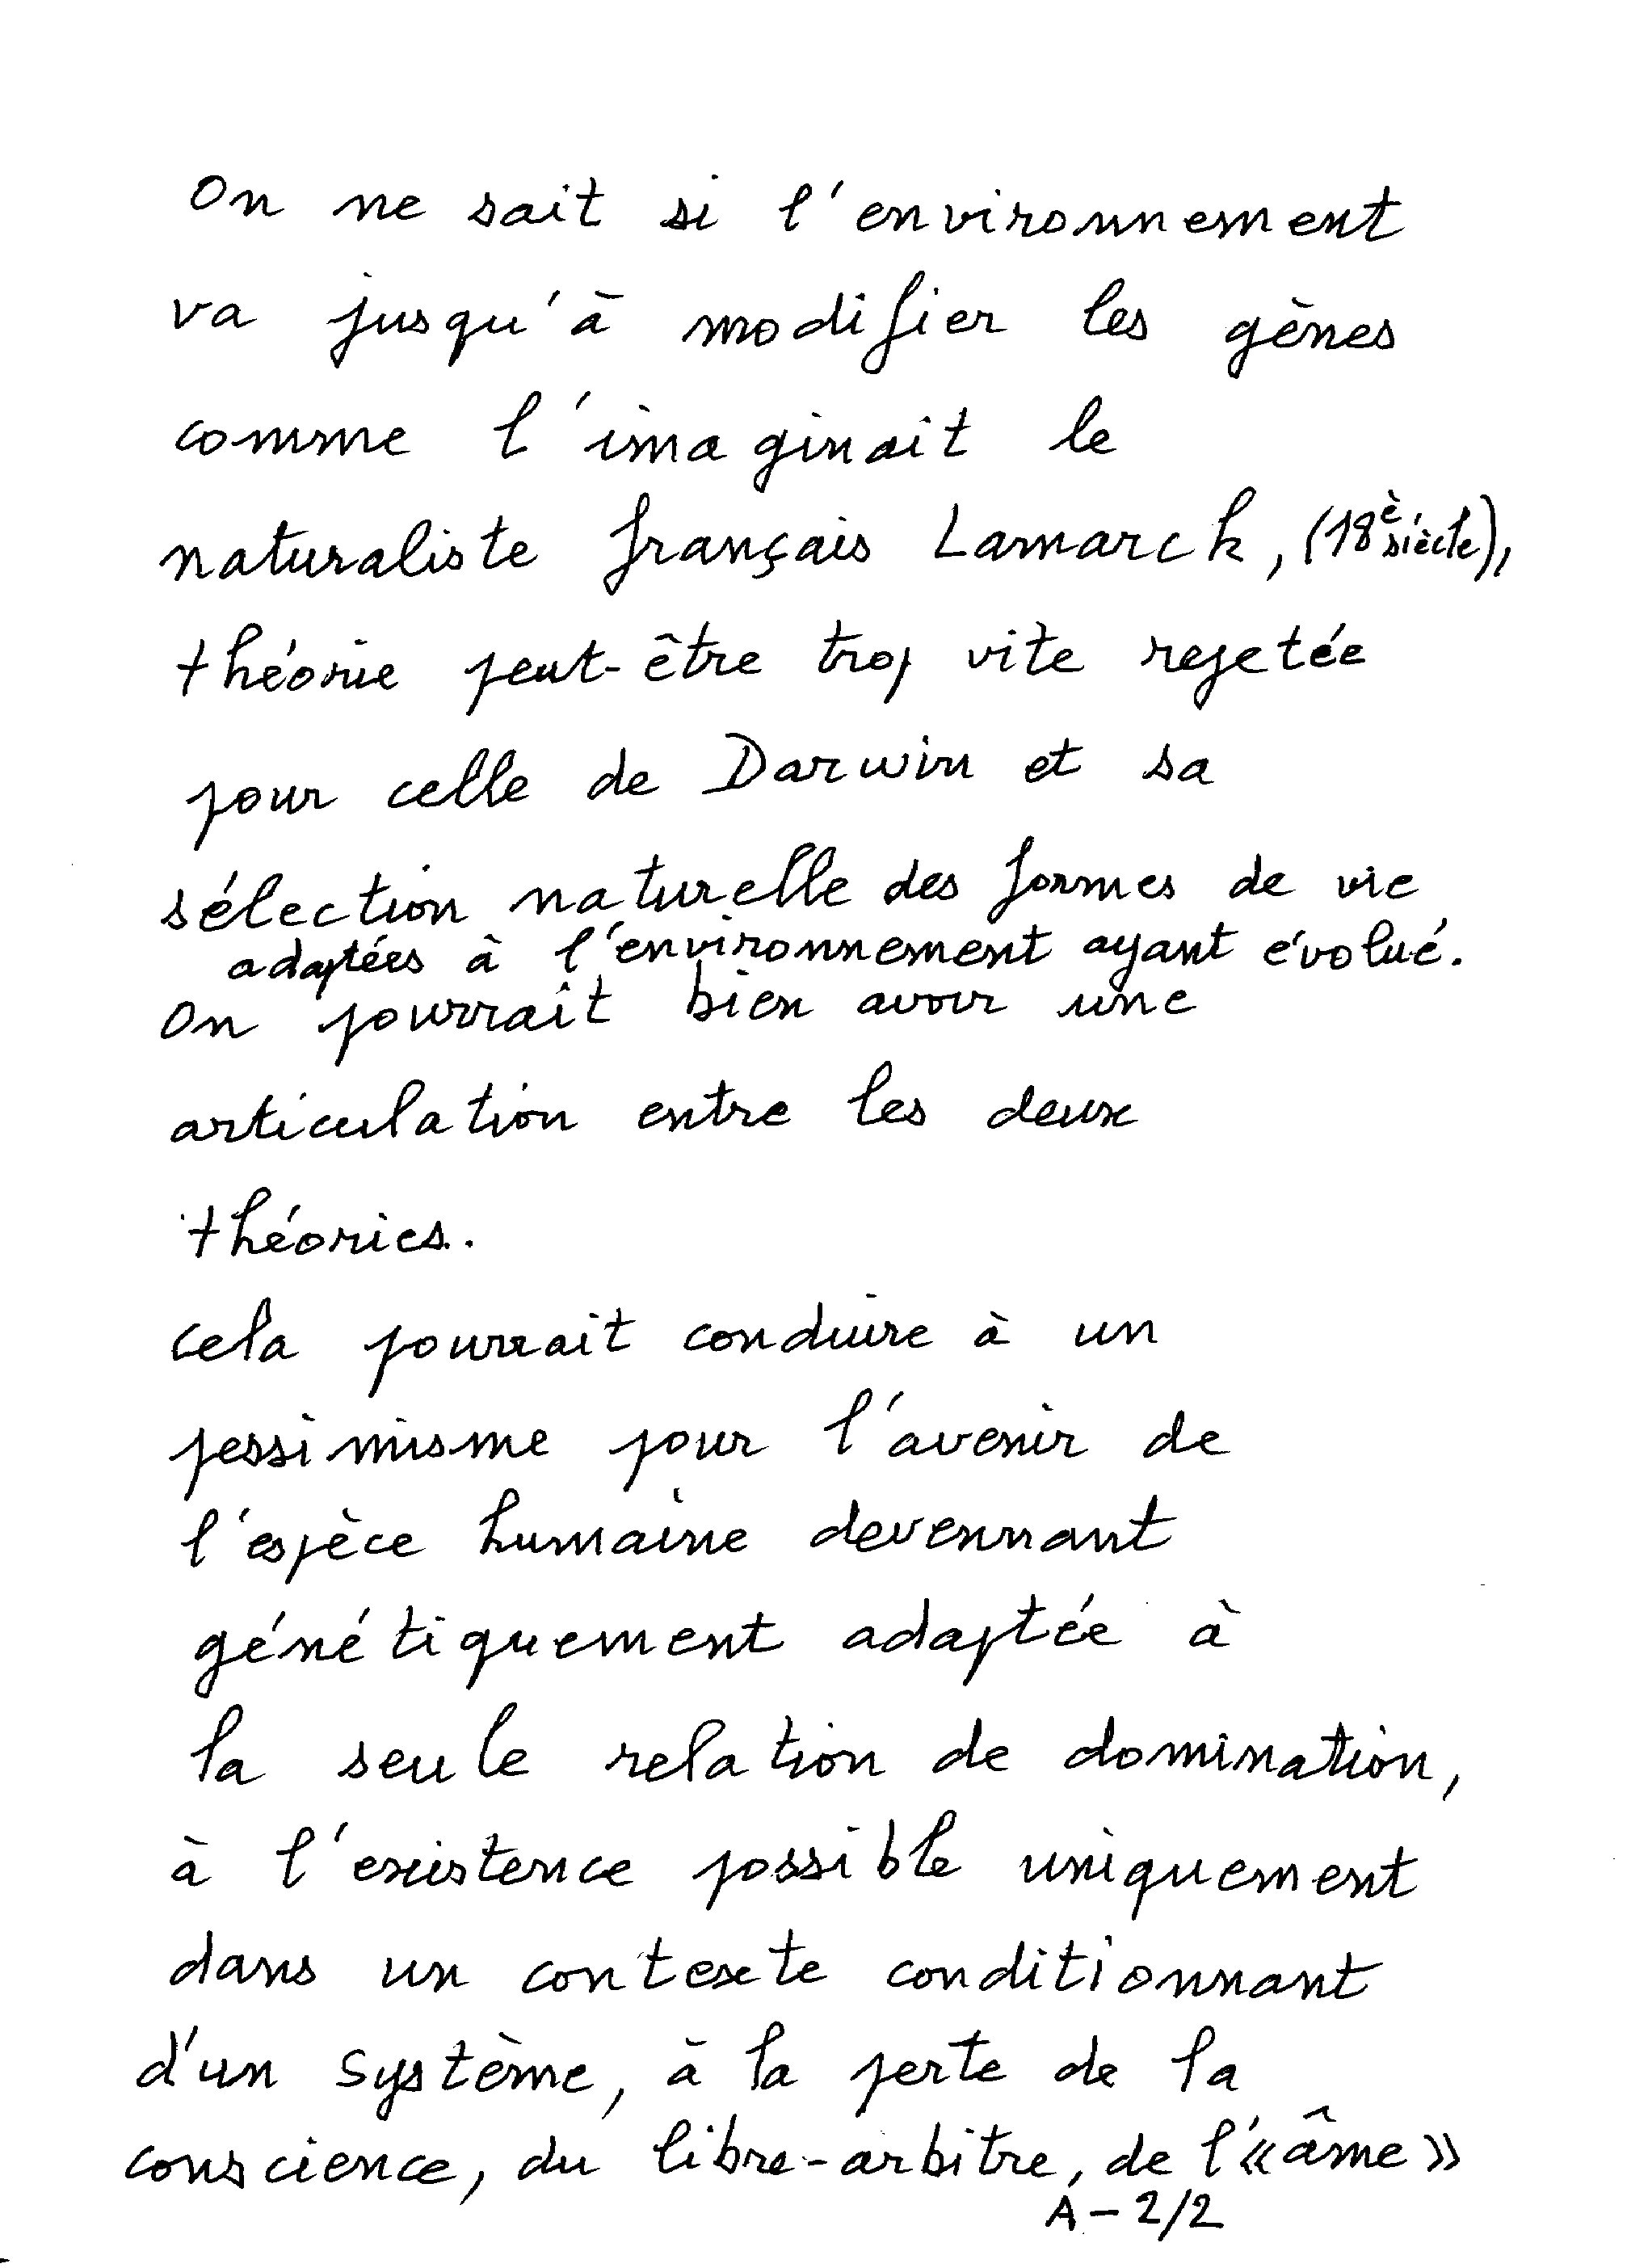 On ne sait si l'environnement
va jusqu'à modifier les gènes
comme l'imaginait le
naturaliste français Lamarck, (18è siècle),
théorie peut-être trop vite rejetée
pour celle de Darwin et sa
sélection naturelle des formes de vie
adaptées à l'environnement ayant évolué.
On pourrait bien avoir une
articulation entre les deux
théories.
cela pourrait conduire à un
pessimisme pour l'avenir de
l'espèce humaine devennant
génétiquement adaptée à
la seule relation de domination,
à l'existence possible uniquement
dans un contexte conditionnant
d'un système, à la perte de la
conscience, du libre-arbitre, de l'«âme»
A-2/2